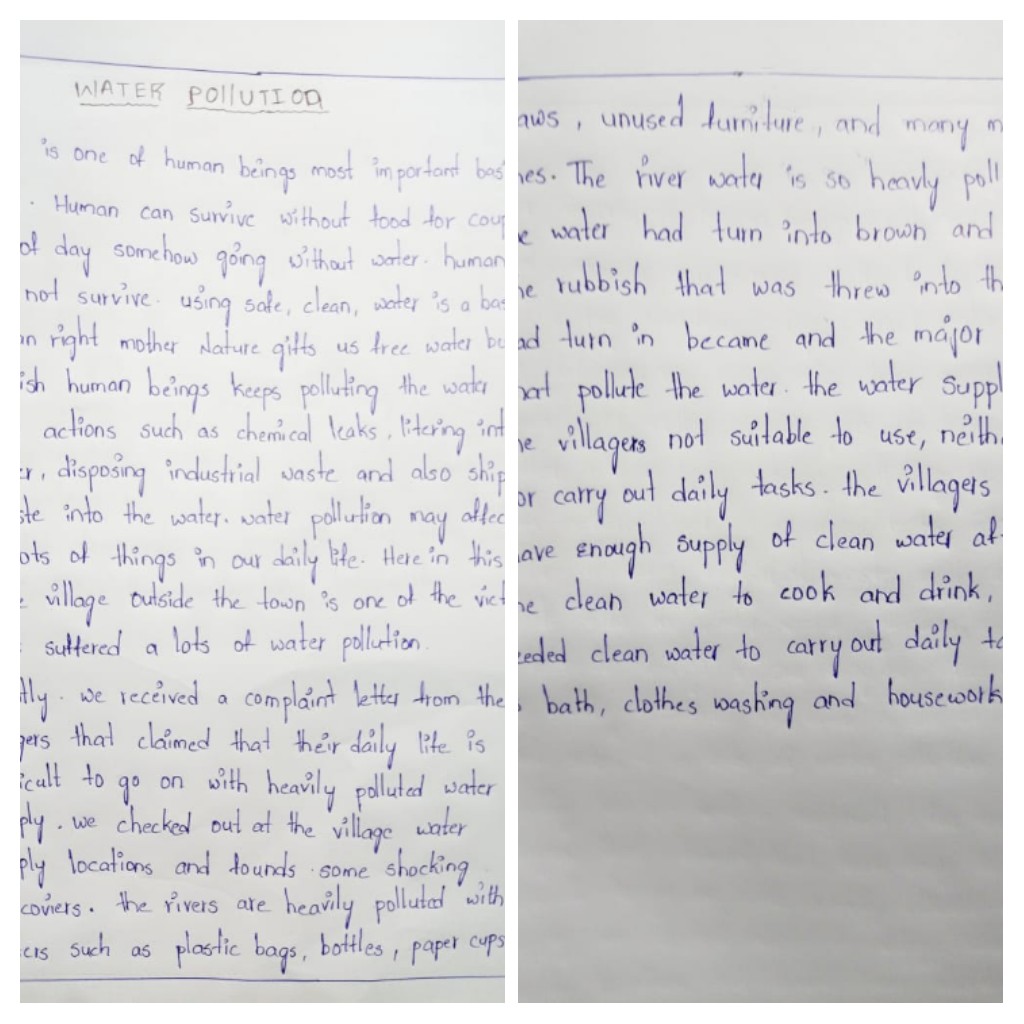 WATER POllUTION
is one of human beings most important bas
. Human can survive without food for coup
of day somehow going without water. human
not survive. using safe, clean, water is a bas
an right mother Nature gifts us free water bu
ish human beings keeps polluting the water
actions such as chemical leaks, litering int
er, disposing industrial waste and also ship
ste into the water. water pollution may affec
ots of things in our daily life. Here in this
e village outside the town is one of the vict
suffered a lots of water pollution.
tly. we received a complaint letter from the
gers that claimed that their daily life is
icult to go on with heavily polluted water
ply. we checked out at the village water
ply locations and founds some shocking
coviers. the rivers are heavily polluted with
such as plastic bags, bottles, paper cups
aws, unused furniture, and many m
nes. The river water is so heavly poll
e water had turn into brown and
he rubbish that was threw into th
ad turn in became and the major
hat pollute the water. the water suppl
he villagers not suitable to use, neith
or carry out daily tasks. the villagers
ave enough supply of clean water af
he clean water to cook and drink,
eeded clean water to carry out daily ta
bath, clothes washing and housework